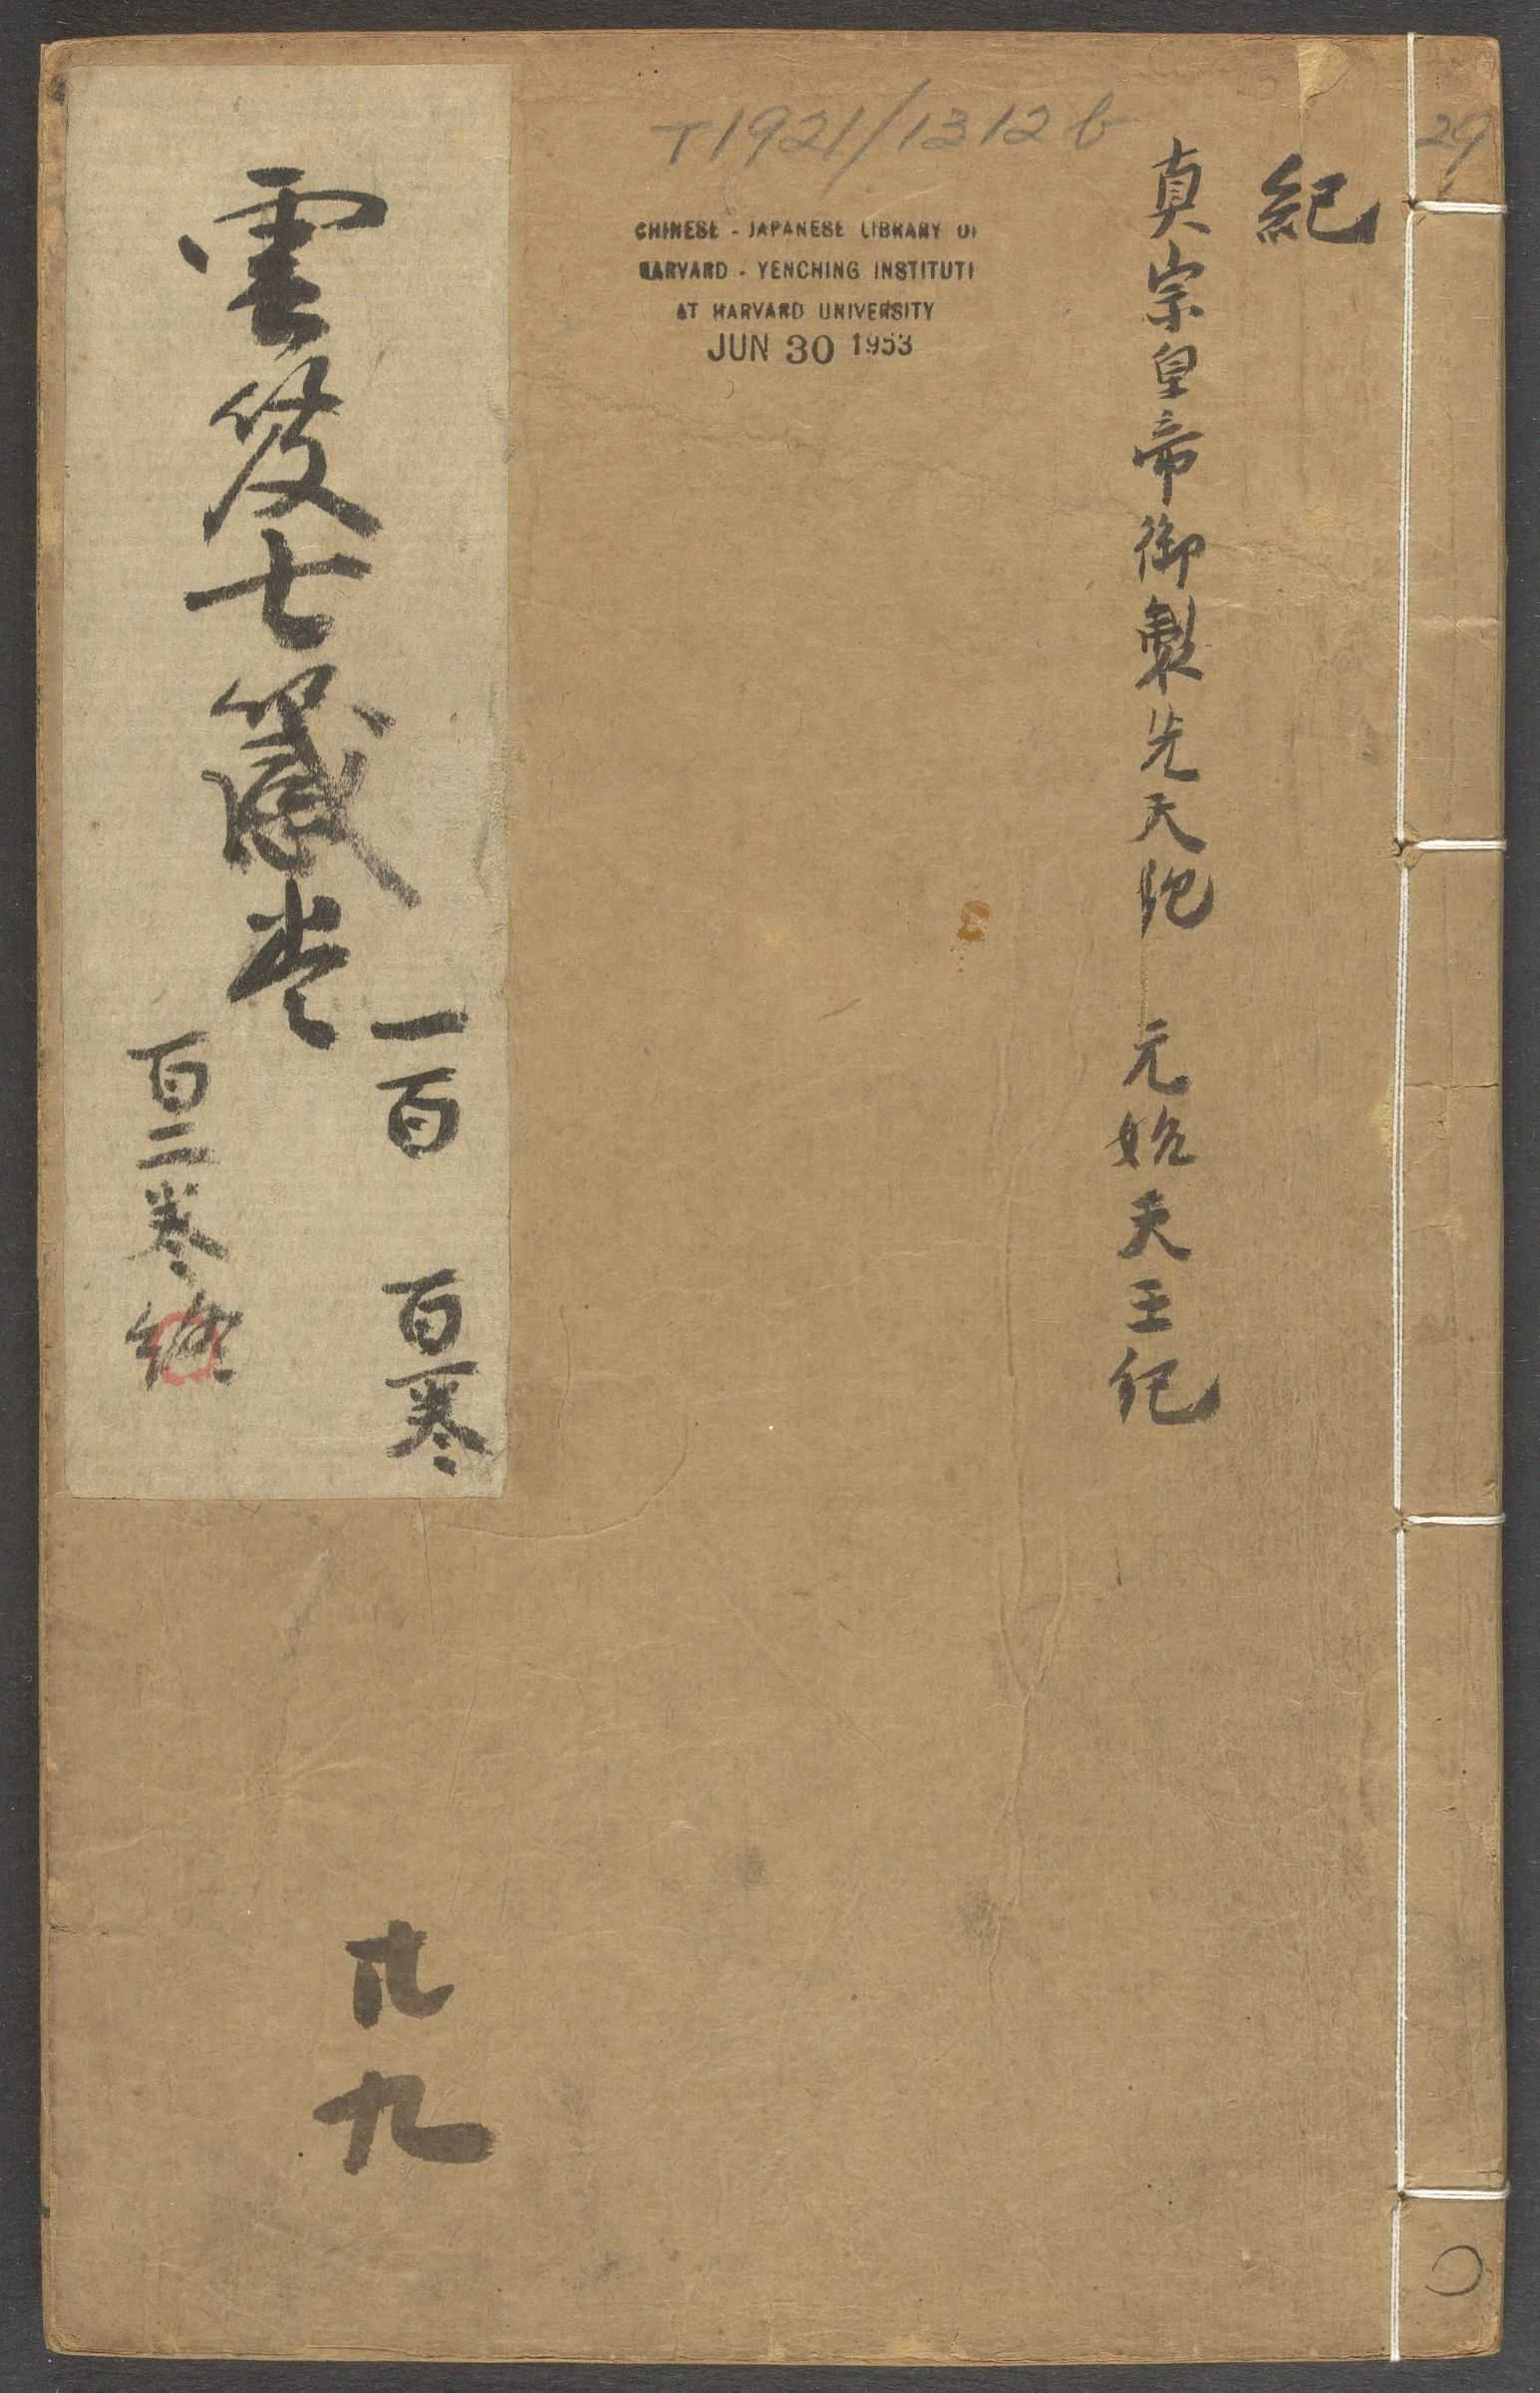 29
T1921/1312 b
紀
真宗皇帝御製先天紀 元始天王紀
CHINESE - JAPANESE LIBRARY OF
HARVARD - YENCHING INSTITUTE
AT HARVARD UNIVERSITY
JUN 30 1953
雲笈七籖卷
一百 百一卷
百二卷
廿九